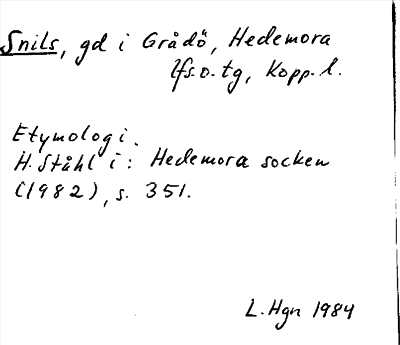 Snils, gd i Grådö, Hedemora
lfs.o.tg, Kopp.l.
Etymologi.
H. Ståhl i: Hedemora socken
(1982), s. 351.
L. Hgn 1984